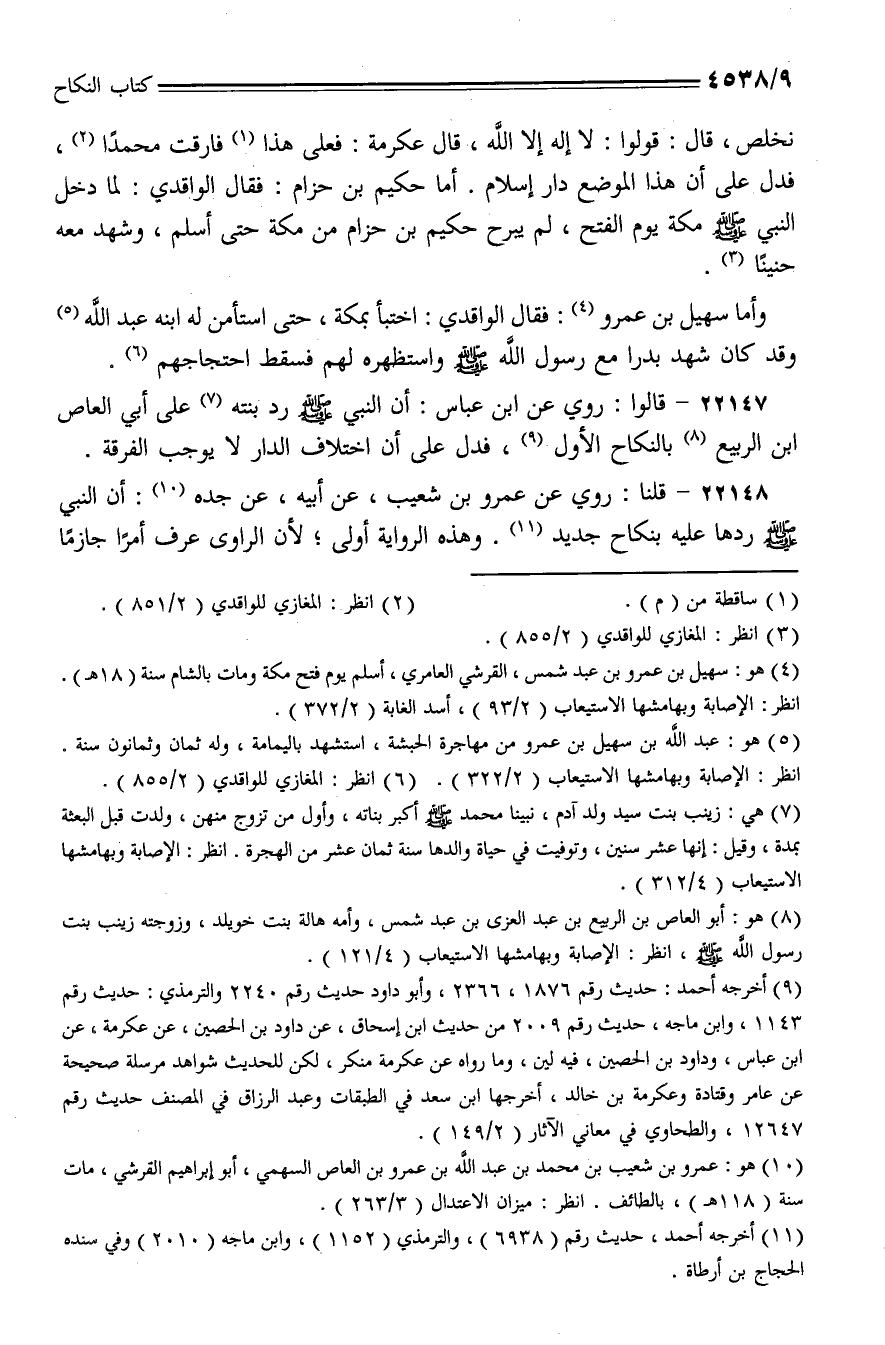 ٤٥٣٨/٩ كتاب النكاح
نخلص ، قال : قولوا : لا إله إلا اللَّه ، قال عكرمة : فعلى هذا (١) فارقت محمدًا (٢) ،
فدل على أن هذا الموضع دار إسلام . أما حكيم بن حزام : فقال الواقدي : لما دخل
النبي ﷺ مكة يوم الفتح ، لم يبرح حكيم بن حزام من مكة حتى أسلم ، وشهد معه
حنينًا (٣) .
وأما سهيل بن عمرو (٤) : فقال الواقدي : اختبأ بمكة ، حتى استأمن له ابنه عبد اللَّه (٥)
وقد كان شهد بدرا مع رسول اللَّه ﷺ واستظهره لهم فسقط احتجاجهم (٦) .
٢٢١٤٧ – قالوا : روي عن ابن عباس : أن النبي ﷺ رد بنته (٧) على أبي العاص
ابن الربيع (٨) بالنكاح الأول (٩) ، فدل على أن اختلاف الدار لا يوجب الفرقة .
٢٢١٤٨ – قلنا : روي عن عمرو بن شعيب ، عن أبيه ، عن جده (١٠) : أن النبي
ﷺ ردها عليه بنكاح جديد (١١) . وهذه الرواية أولى ؛ لأن الراوى عرف أمرًا جازمًا
(١) ساقطة من ( م ) . (٢) انظر : المغازي للواقدي ( ٨٥١/٢ ) .
(٣) انظر : المغازي للواقدي ( ٨٥٥/٢ ) .
(٤) هو : سهيل بن عمرو بن عبد شمس ، القرشي العامري ، أسلم يوم فتح مكة ومات بالشام سنة ( ١٨هـ ) .
انظر : الإصابة وبهامشها الاستيعاب ( ٩٣/٢ ) ، أسد الغابة ( ٣٧٢/٢ ) .
(٥) هو : عبد اللَّه بن سهيل بن عمرو من مهاجرة الحبشة ، استشهد باليمامة ، وله ثمان وثمانون سنة .
انظر : الإصابة وبهامشها الاستيعاب ( ٣٢٢/٢ ) . (٦) انظر : المغازي للواقدي ( ٨٥٥/٢ ) .
(٧) هي : زينب بنت سيد ولد آدم ، نبينا محمد ﷺ أكبر بناته ، وأول من تزوج منهن ، ولدت قبل البعثة
بمدة ، وقيل : إنها عشر سنين ، وتوفيت في حياة والدها سنة ثمان عشر من الهجرة . انظر : الإصابة وبهامشها
الاستيعاب ( ٣١٢/٤ ) .
(٨) هو : أبو العاص بن الربيع بن عبد العزى بن عبد شمس ، وأمه هالة بنت خويلد ، وزوجته زينب بنت
رسول اللَّه ﷺ ، انظر : الإصابة وبهامشها الاستيعاب ( ١٢١/٤ ) .
(٩) أخرجه أحمد : حديث رقم ١٨٧٦ ، ٢٣٦٦ ، وأبو داود حديث رقم ٢٢٤٠ والترمذي : حديث رقم
١١٤٣ ، وابن ماجه ، حديث رقم ٢٠٠٩ من حديث ابن إسحاق ، عن داود بن الحصين ، عن عكرمة ، عن
ابن عباس ، وداود بن الحصين ، فيه لين ، وما رواه عن عكرمة منكر ، لكن للحديث شواهد مرسلة صحيحة
عن عامر وقتادة وعكرمة بن خالد ، أخرجها ابن سعد في الطبقات وعبد الرزاق في المصنف حديث رقم
١٢٦٤٧ ، والطحاوي في معاني الآثار ( ١٤٩/٢ ) .
(١٠) هو : عمرو بن شعيب بن محمد بن عبد اللَّه بن عمرو بن العاص السهمي ، أبو إبراهيم القرشي ، مات
سنة ( ١١٨هـ ) ، بالطائف . انظر : ميزان الاعتدال ( ٢٦٣/٣ ) .
(١١) أخرجه أحمد ، حديث رقم ( ٦٩٣٨ ) ، والترمذي ( ١١٥٢ ) ، وابن ماجه ( ٢٠١٠ ) وفي سنده
الحجاج بن أرطاة .